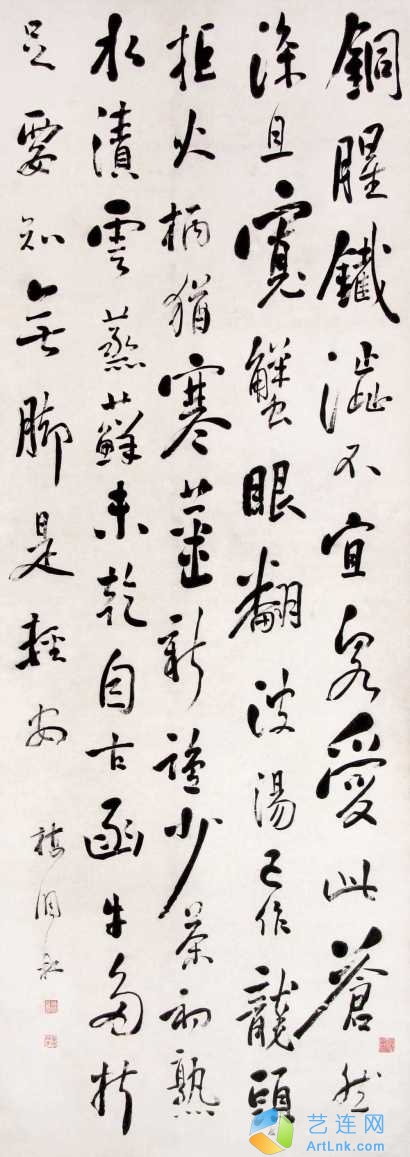 銅腥鐵澁不宜泉愛此蒼然
深且寬蟹眼翻波湯已作龍頭
拒火柄猶寒薑新鹽少茶初熟
水漬雲蒸蘚未乾自古函牛多折
足要知無脚是輕安
艺连网
ArtLnk.com